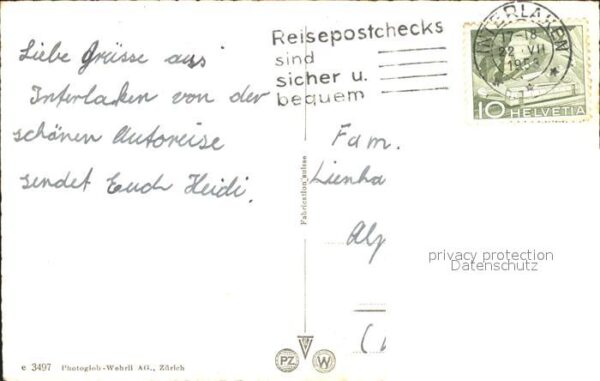 Liebe Grüsse aus
Interlaken von der
schönen Autoreise
sendet Euch Heidi.
Reisepostchecks
sind
sicher u.
bequem
INTERLAKEN
17-18
22 VII
1953
10 HELVETIA
Fam.
Lienha
Alp
privacy protection
Datenschutz
(
Fabrication suisse
PZ W
c 3497 Photoglob-Wehrli AG., Zürich